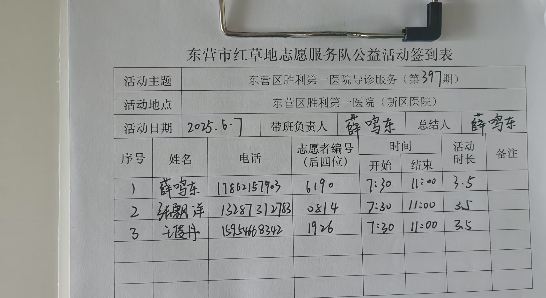 东营市红草地志愿服务队公益活动签到表
活动主题 东营区胜利第一医院导诊服务（第397期）
活动地点 东营区胜利第一医院（新区医院）
活动日期 2025.6.7 带班负责人 薛鸣东 总结人 薛鸣东
序号 姓名 电话 志愿者编号（后四位） 时间 开始 结束 活动时长 备注
1 薛鸣东 17862157903 6190 7:30 11:00 3.5
2 洋 13287312783 0814 7:30 11:00 3.5
3 15954668342 1926 7:30 11:00 3.5